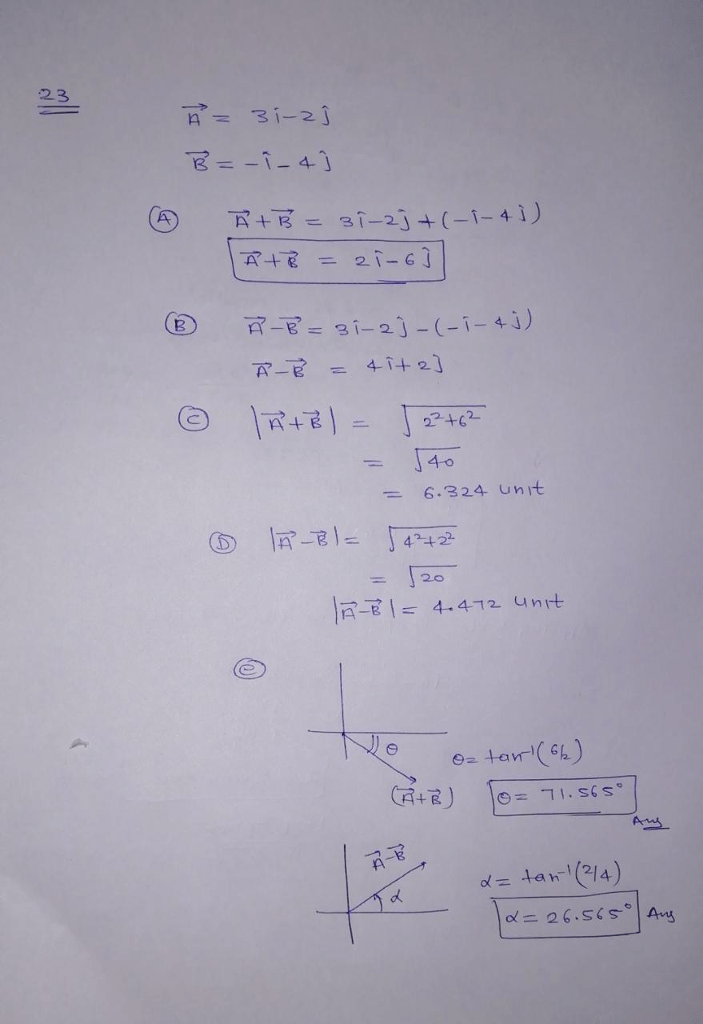 23
A⃗ = 3î-2ĵ
B⃗ = -î-4ĵ
(A) A⃗+B⃗ = 3î-2ĵ+(-î-4ĵ)
A⃗+B⃗ = 2î-6ĵ
(B) A⃗-B⃗ = 3î-2ĵ-(-î-4ĵ)
A⃗-B⃗ = 4î+2ĵ
(C) |A⃗+B⃗| = √2²+6²
= √40
= 6.324 unit
(D) |A⃗-B⃗| = √4²+2²
= √20
|A⃗-B⃗| = 4.472 unit
(e)
θ
θ= tan⁻¹(6/2)
(A⃗+B⃗)
θ= 71.565°
Ans
A⃗-B⃗
α
α= tan⁻¹(2/4)
α= 26.565° Ans